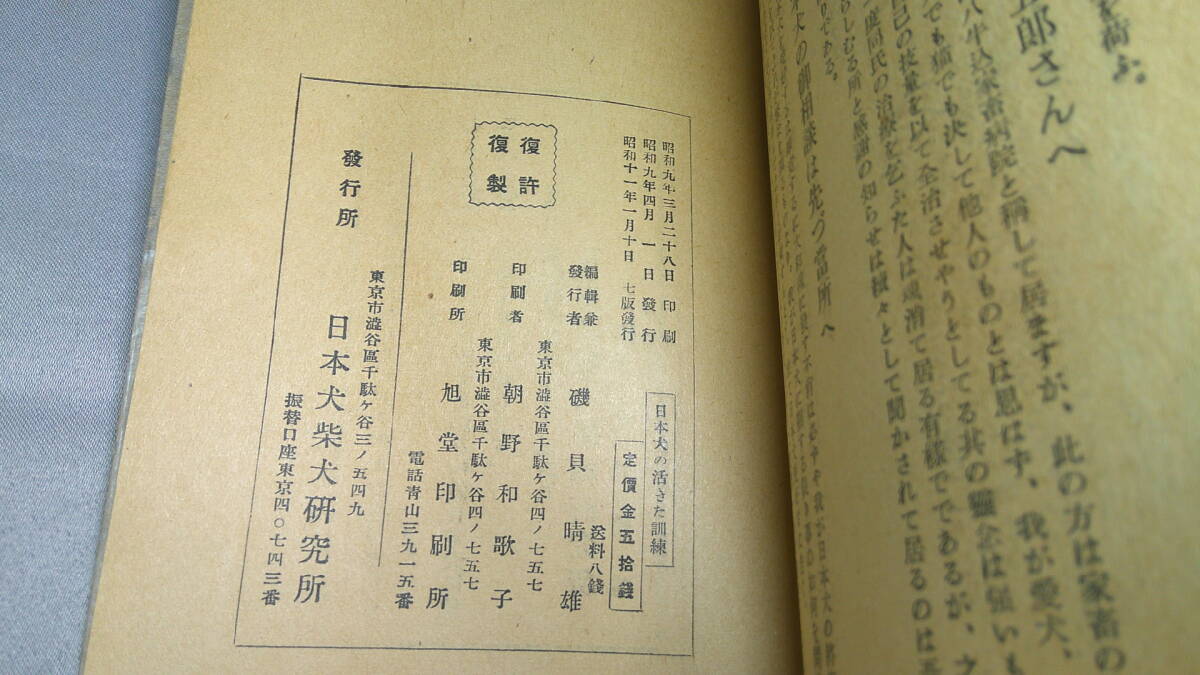 を荷ふ。
五郎さんへ
八牛込家畜病院と稱して居ますが、此の方は家畜の
でも猫でも決して他人のものとは思はず、我が愛犬、
自己の技量を以て全治させやりとしてる其の
一度同氏の治療を乞ふた人は魂消て居る有様でであるが、之
らしむる所と感謝の知らせは
として聞かされて居るのは
りである。
犬の御相談は先づ當所へ
昭和九年三月二十八日 印刷
昭和九年四月 一 日 發行
昭和十一年一月十日 七版發行
日本犬の活きた訓練
定價金五拾錢
送料八錢
編輯兼
發行者 磯貝晴雄
東京市澁谷區千駄ヶ谷四ノ七五七
印刷者 朝野和歌子
東京市澁谷區千駄ヶ谷四ノ七五七
印刷所 旭堂印刷所
電話靑山三九一五番
復許
復製
發行所
東京市澁谷區千駄ヶ谷三ノ五四九
日本犬柴犬研究所
振替口座東京四〇七四三番